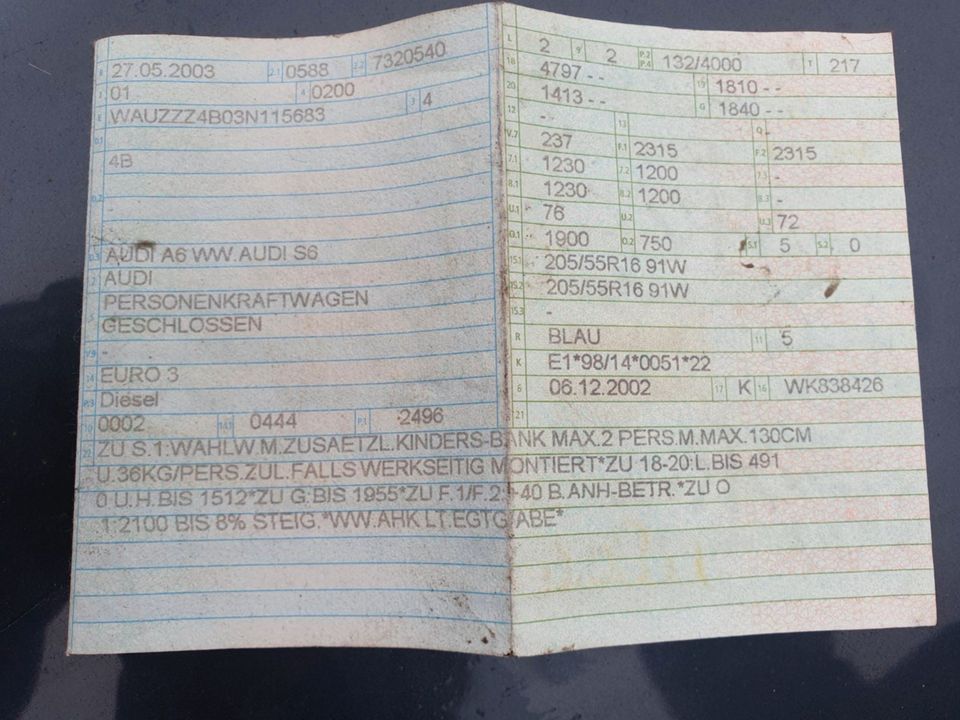 B 27.05.2003 2.1 0588 2.2 7320540
J 01 4 0200
E WAUZZZ4B03N115683 3 4
D.1
4B
D.2
-
D.3 AUDI A6 WW.AUDI S6
2 AUDI
5 PERSONENKRAFTWAGEN
GESCHLOSSEN
V.9 -
14 EURO 3
P.3 Diesel
10 0002 14.1 0444 P.1 2496
L 2 9 2 P.2 P.4 132/4000 T 217
18 4797 - - 19 1810 - -
20 1413 - - G 1840 - -
12 - 13 Q -
V.7 237 F.1 2315 F.2 2315
7.1 1230 7.2 1200 7.3 -
8.1 1230 8.2 1200 8.3 -
U.1 76 U.2 U.3 72
O.1 1900 O.2 750 S.1 5 S.2 0
15.1 205/55R16 91W
15.2 205/55R16 91W
15.3 -
R BLAU 11 5
K E1*98/14*0051*22
6 06.12.2002 17 K 16 WK838426
21
22 ZU S.1:WAHLW.M.ZUSAETZL.KINDERS-BANK MAX.2 PERS.M.MAX.130CM
U.36KG/PERS.ZUL.FALLS WERKSEITIG MONTIERT*ZU 18-20:L.BIS 491
0 U.H.BIS 1512*ZU G:BIS 1955*ZU F.1/F.2:+40 B.ANH-BETR.*ZU O
.1:2100 BIS 8% STEIG.*WW.AHK LT.EGTG/ABE*